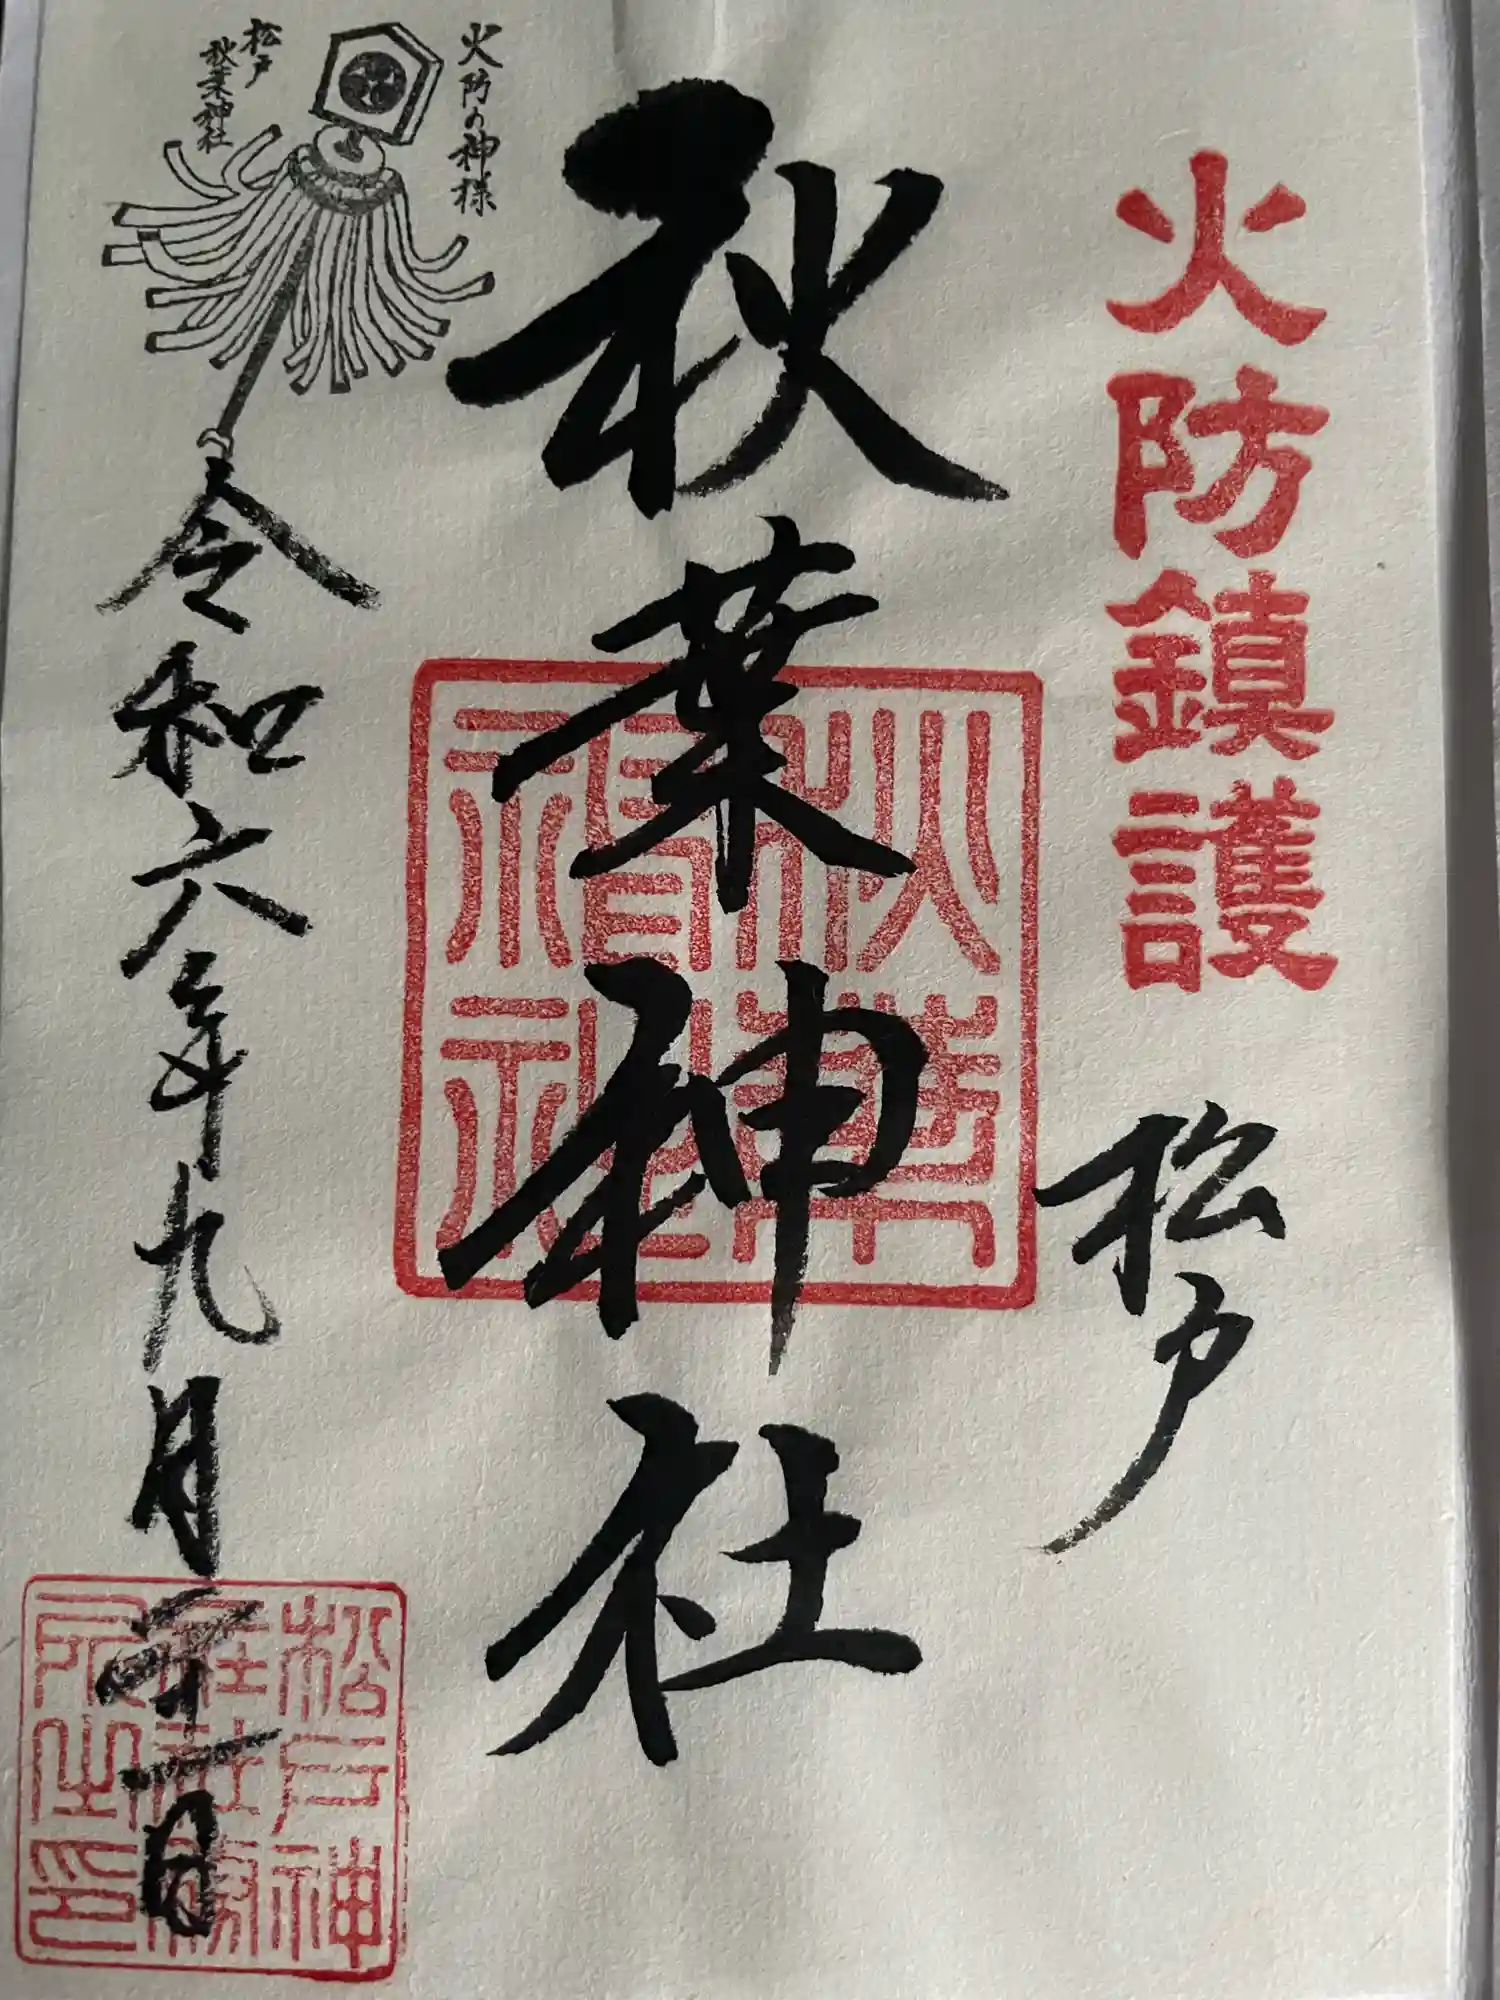 火防鎮護
松戸
秋葉神社
秋葉
神社
火防の神様
松戸
秋葉神社
令和六年九月二十一日
松戸神
社社務
所之印